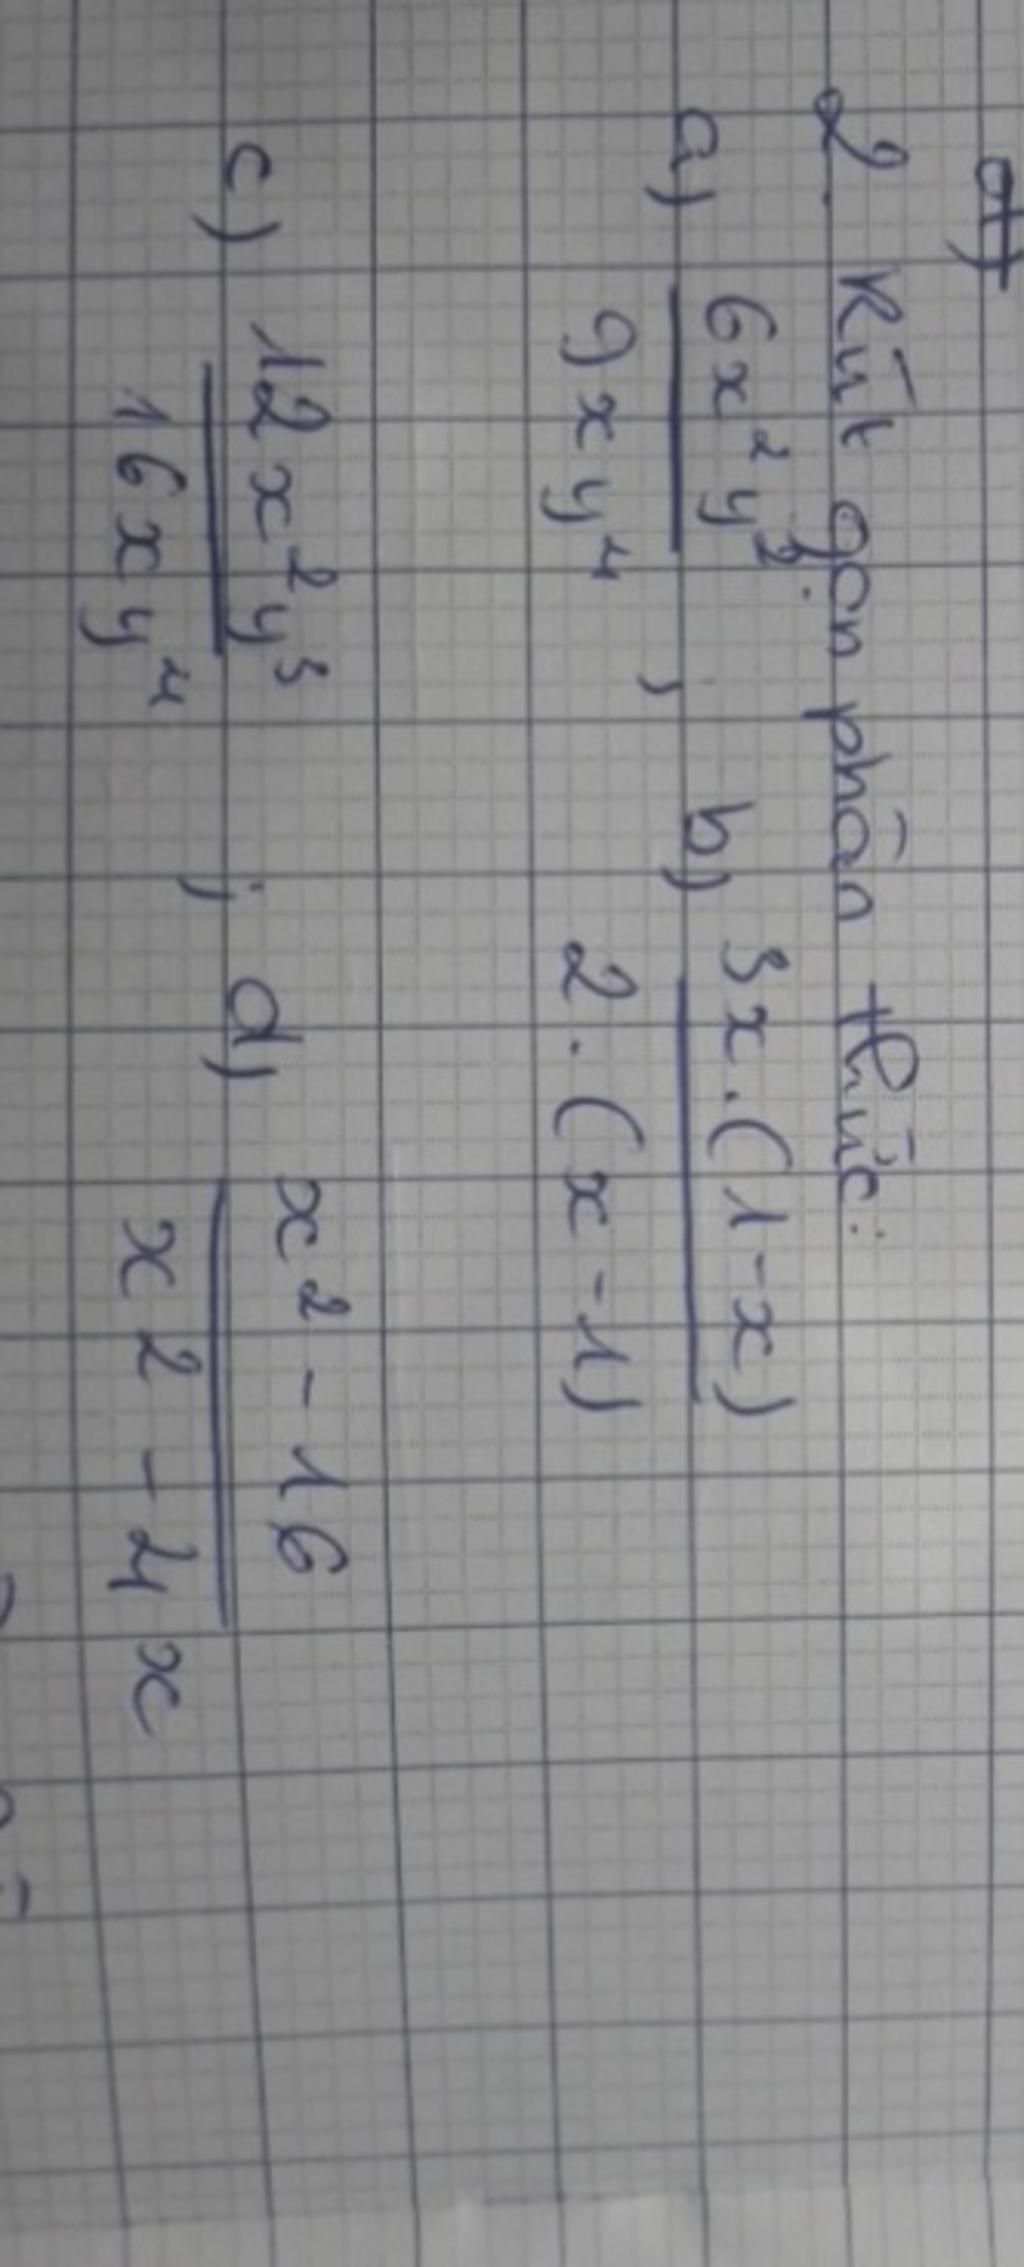 2. Rút gọn phân thức:
a) 6x²y² / 9xy⁴ , b) 3x.(1-x) / 2.(x-1)
c) 12x²y³ / 16xy⁴ ; d) x² - 16 / x2 - 4x